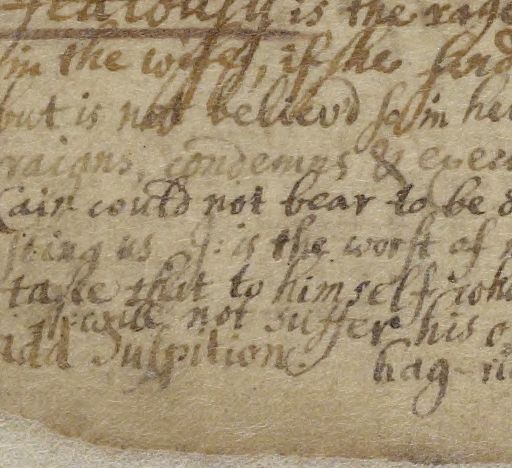 Jealousy is the rage
in the wife, if she find
but is not believd so in her
raigns, condemns & exec
Cain could not bear to be
sting us is the worst of
take that to himself who
will not suffer his
add Suspition. hag-ri